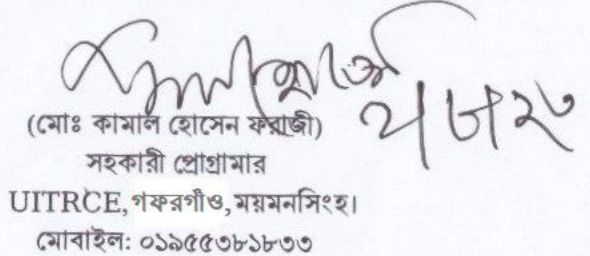 (মোঃ কামাল হোসেন ফরাজী)
সহকারী প্রোগ্রামার
UITRCE, গফরগাঁও, ময়মনসিংহ।
মোবাইল: ০১৯৫৫৩৮১৮৩৩